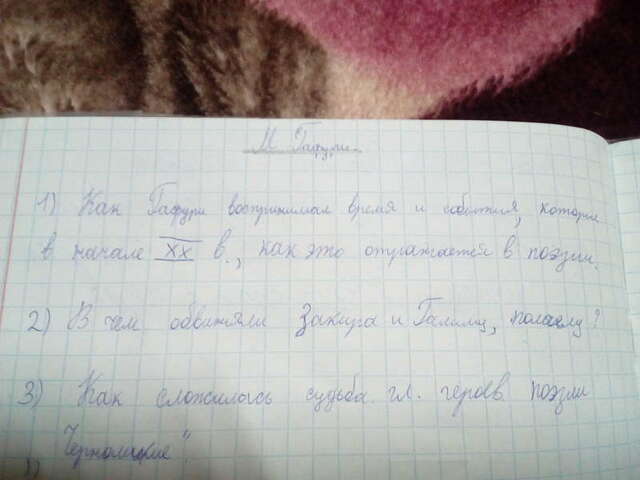 М. Гафури.
1) Как Гафури воспринимал время и события, которые
в начале XX в., как это отражается в поэзии.
2) В чём обвиняли Закира и Галиму, почему?
3) Как сложилась судьба гл. героев поэзии
Чернолицые".